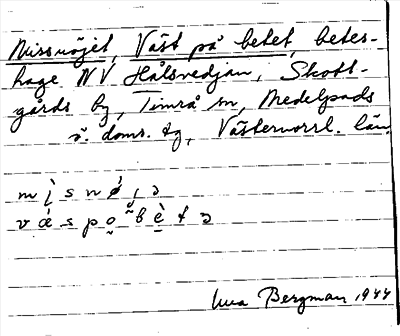 Missnöjet, Väst på betet, betes-
hage NV Hålsvedjan, Skott-
gårds by, Timrå sn, Medelpads
s. doms. tg, Västernorrl. län.
m i s n ø j ə
v æ s p o b e t ə
Bergman 1944